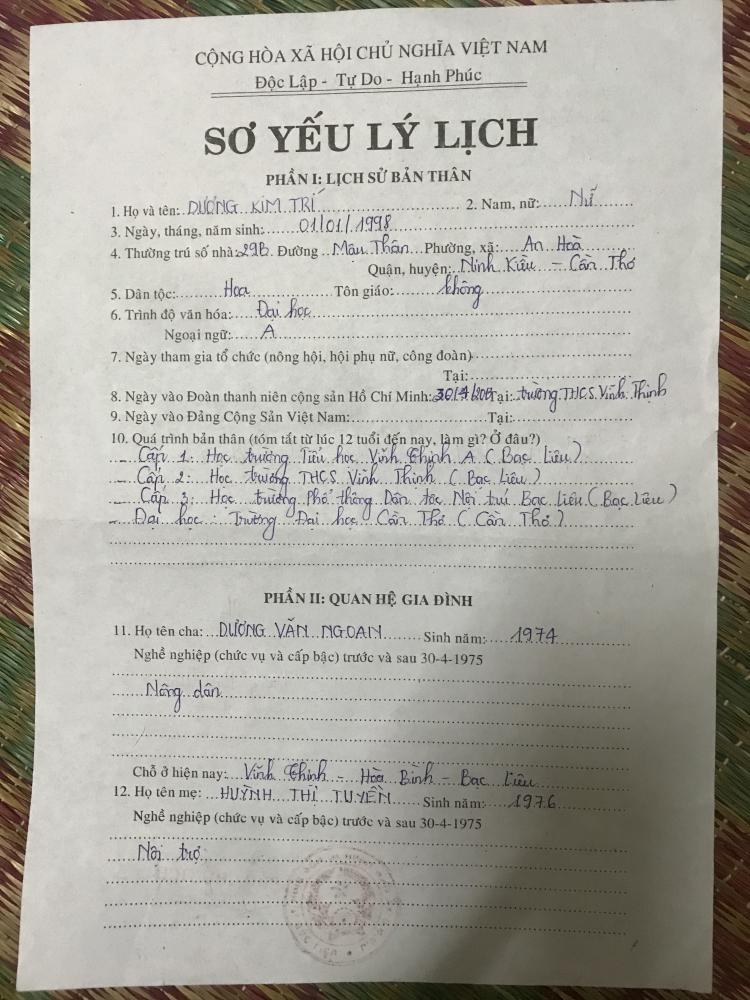 CỘNG HÒA XÃ HỘI CHỦ NGHĨA VIỆT NAM
Độc Lập - Tự Do - Hạnh Phúc
SƠ YẾU LÝ LỊCH
PHẦN I: LỊCH SỬ BẢN THÂN
1. Họ và tên: DƯƠNG KIM TRÍ 2. Nam, nữ: Nữ
3. Ngày, tháng, năm sinh: 01/01/1998
4. Thường trú số nhà: 29B Đường Mậu Thân Phường, xã: An Hoà
Quận, huyện: Ninh Kiều - Cần Thơ
5. Dân tộc: Hoa Tôn giáo: không
6. Trình độ văn hóa: Đại học
Ngoại ngữ: A
7. Ngày tham gia tổ chức (nông hội, hội phụ nữ, công đoàn)
Tại:
8. Ngày vào Đoàn thanh niên cộng sản Hồ Chí Minh: Tại: trường THCS Vĩnh Thịnh
9. Ngày vào Đảng Cộng Sản Việt Nam: Tại:
10. Quá trình bản thân (tóm tắt từ lúc 12 tuổi đến nay, làm gì? Ở đâu?)
- Cấp 1: Học trường Tiểu học Vĩnh Thịnh A (Bạc Liêu)
- Cấp 2: Học trường THCS Vĩnh Thịnh (Bạc Liêu)
- Cấp 3: Học trường Phổ thông Dân tộc Nội trú Bạc Liêu (Bạc Liêu)
- Đại học: Trường Đại học Cần Thơ (Cần Thơ)
PHẦN II: QUAN HỆ GIA ĐÌNH
11. Họ tên cha: DƯƠNG VĂN NGOAN Sinh năm: 1974
Nghề nghiệp (chức vụ và cấp bậc) trước và sau 30-4-1975
Nông dân
Chỗ ở hiện nay: Vĩnh Thịnh - Hòa Bình - Bạc Liêu
12. Họ tên mẹ: HUỲNH THỊ TUYỀN Sinh năm: 1976
Nghề nghiệp (chức vụ và cấp bậc) trước và sau 30-4-1975
Nội trợ